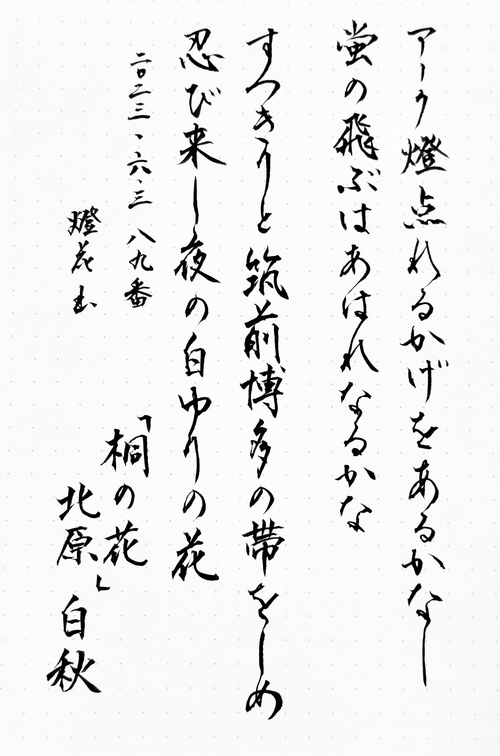 アーク燈点れるかげをあるかなし
蛍の飛ぶはあはれなるかな
すつきりと筑前博多の帯をしめ
忍び来し夜の白ゆりの花
二〇二三、六、三 八九番
燈花
「桐の花」
北原白秋